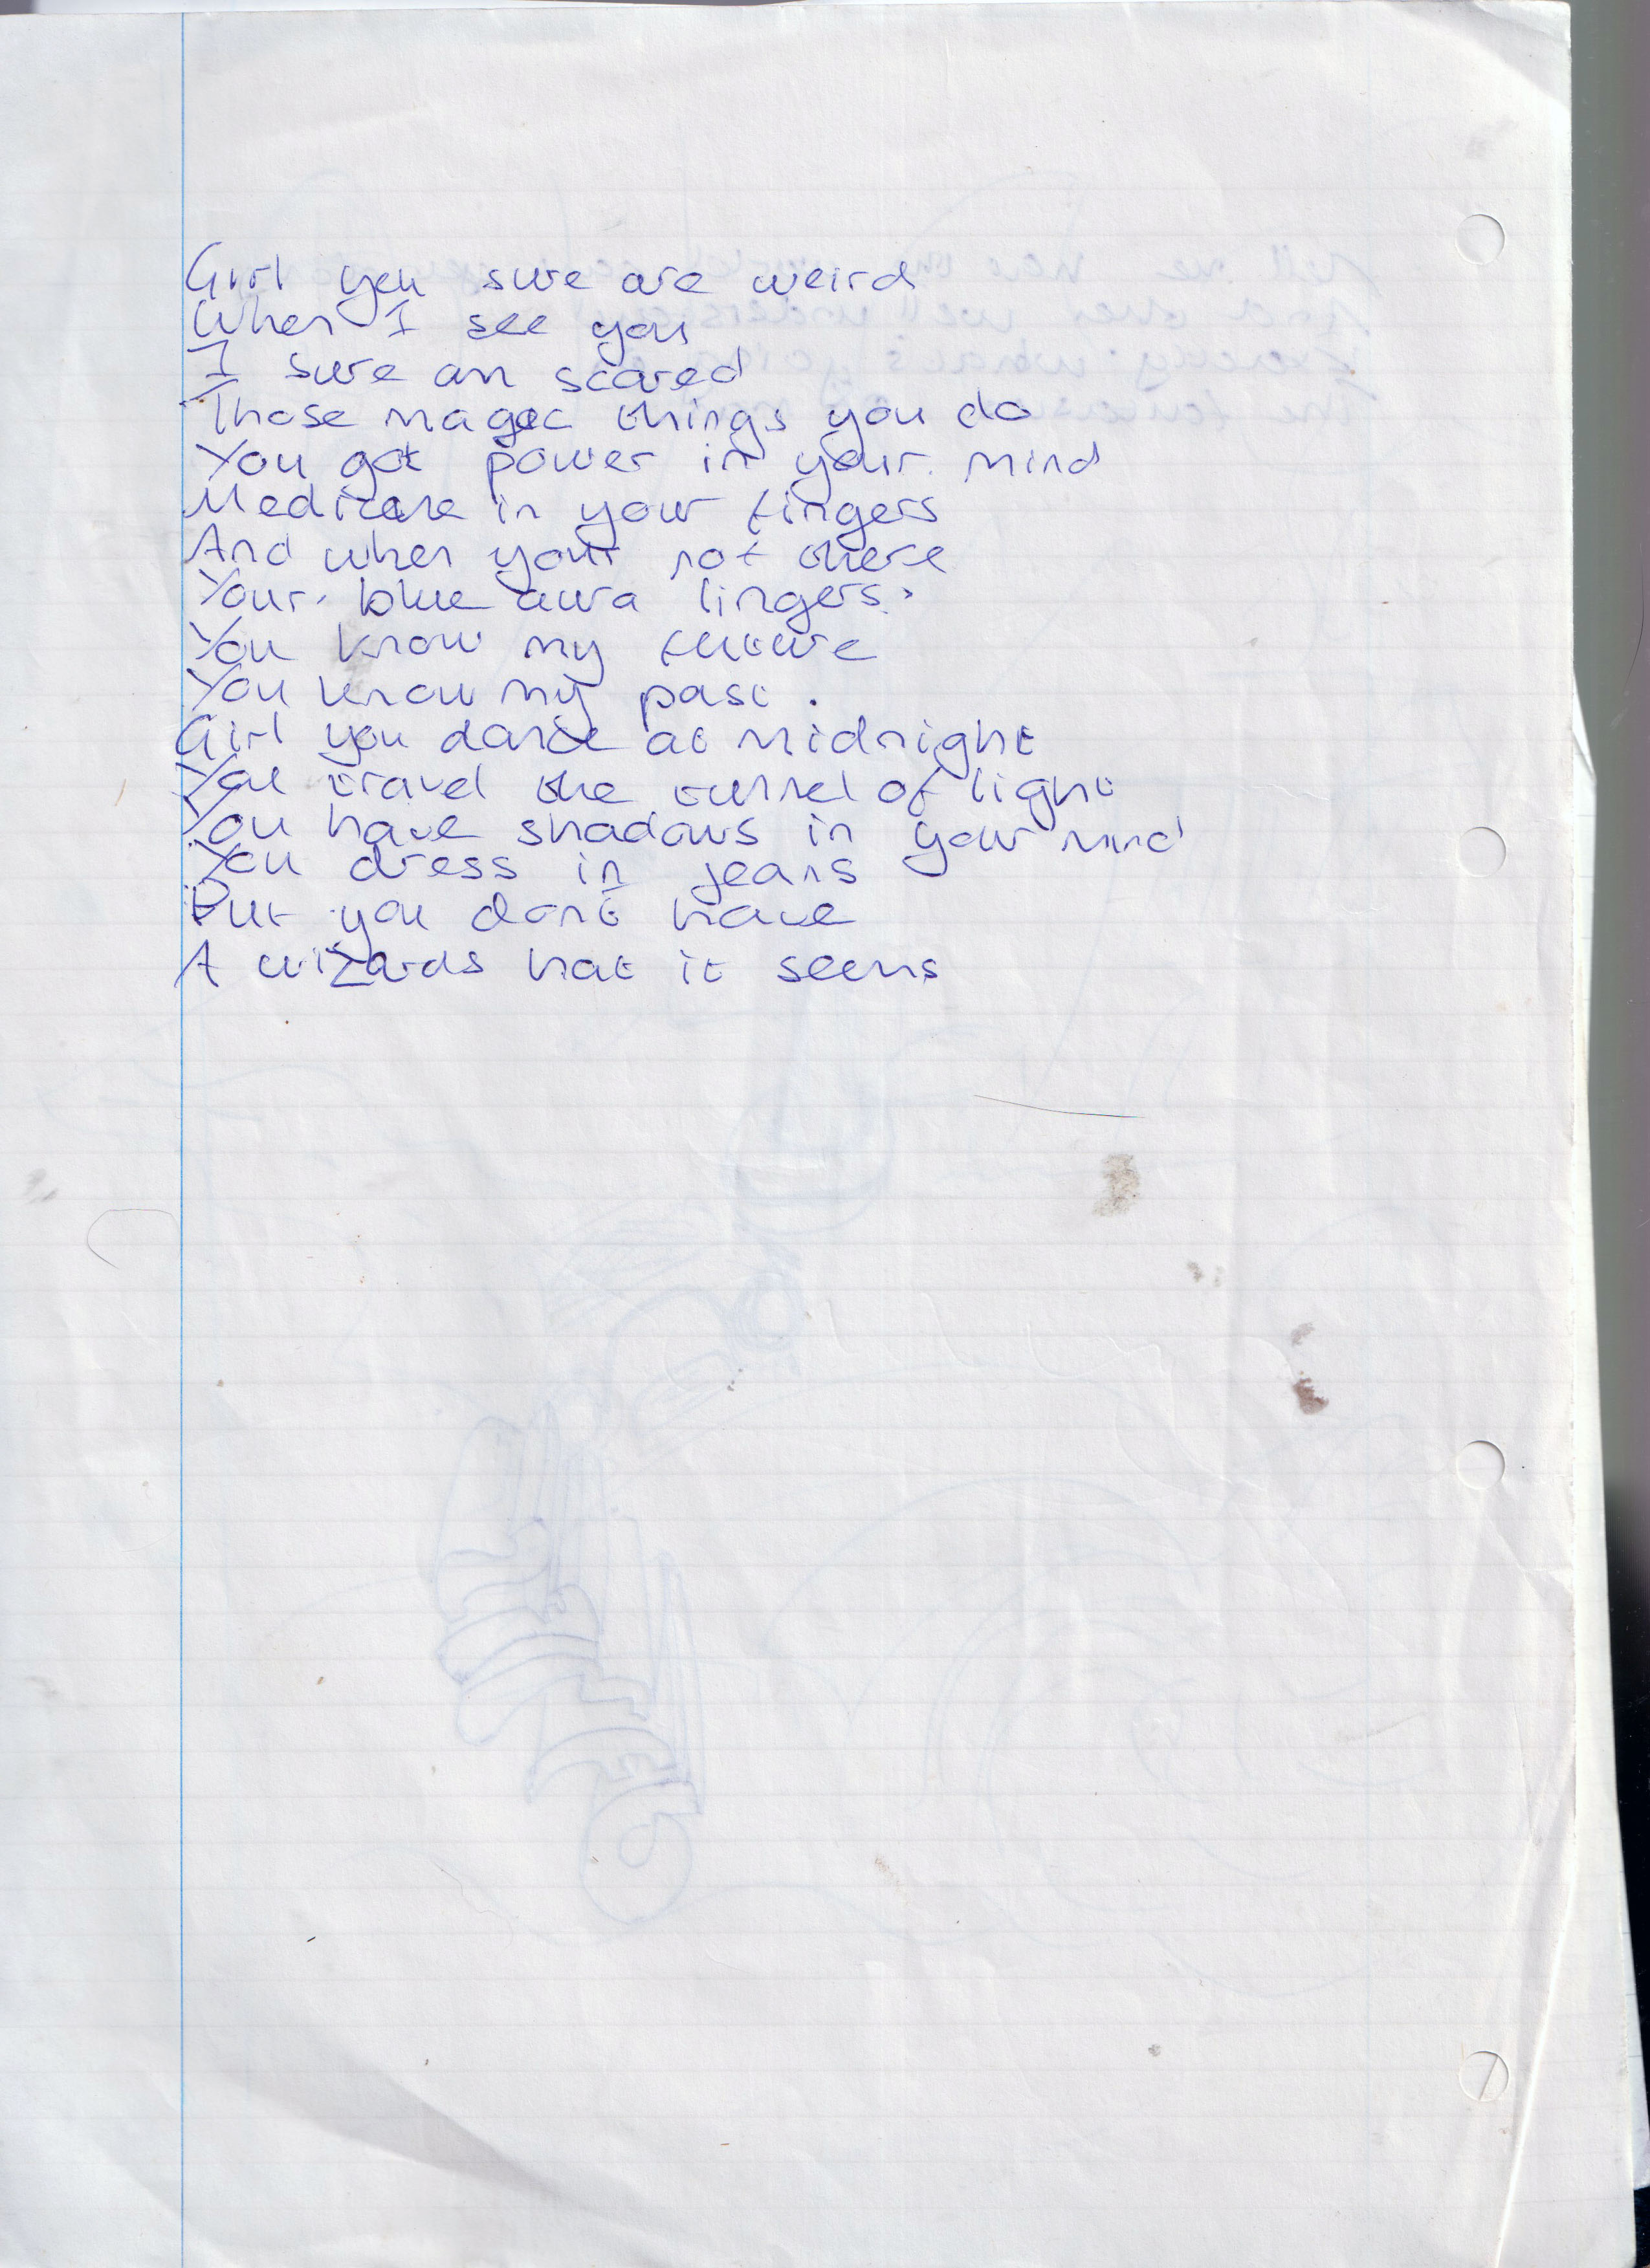 Girl you sure are weird
When I see you
I sure am scared
Those magec things you do
You got power in your mind
Medicine in your fingers
And when your not there
Your blue aura lingers.
You know my future
You know my past.
Girl you dance at midnight
You travel the tunnel of light
You have shadows in your mind
You dress in jeans
But you dont have
A wizards hat it seems